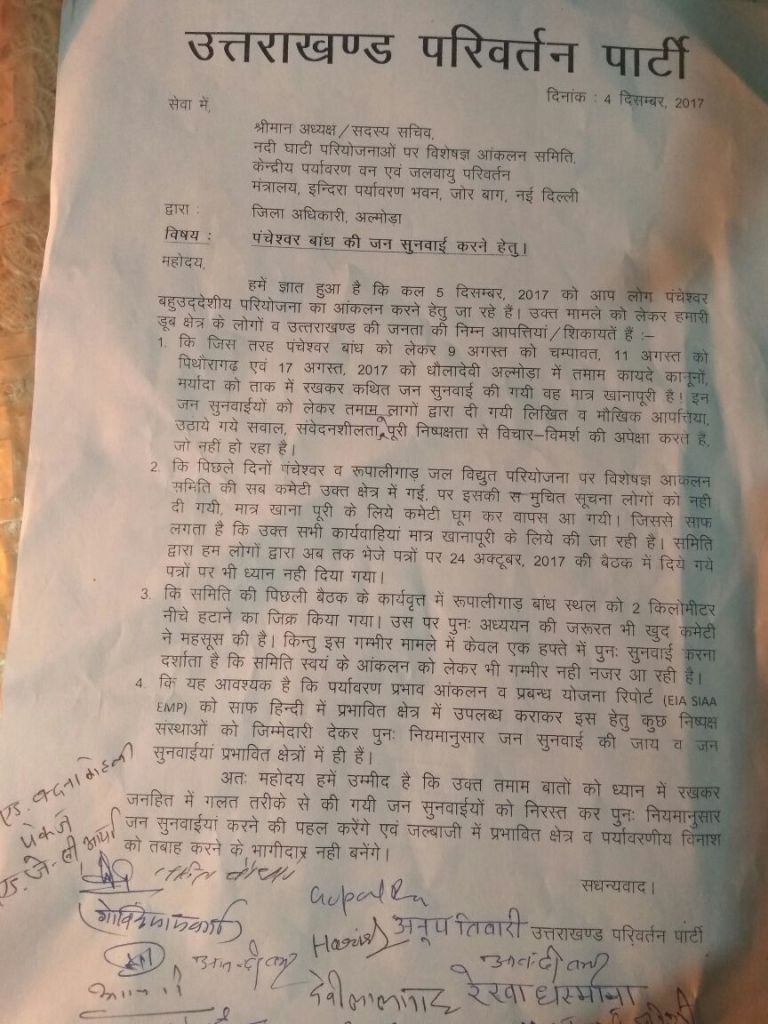 उत्तराखण्ड परिवर्तन पार्टी
दिनांक : 4 दिसम्बर, 2017
सेवा में,
श्रीमान अध्यक्ष/सदस्य सचिव,
नदी घाटी परियोजनाओं पर विशेषज्ञ आंकलन समिति,
केन्द्रीय पर्यावरण वन एवं जलवायु परिवर्तन
मंत्रालय, इन्दिरा पर्यावरण भवन, जोर बाग, नई दिल्ली
द्वारा : जिला अधिकारी, अल्मोड़ा
विषय : पंचेश्वर बांध की जन सुनवाई करने हेतु।
महोदय,
हमें ज्ञात हुआ है कि कल 5 दिसम्बर, 2017 को आप लोग पंचेश्वर
बहुउद्देशीय परियोजना का आंकलन करने हेतु जा रहे हैं। उक्त मामले को लेकर हमारी
डूब क्षेत्र के लोगों व उत्तराखण्ड की जनता की निम्न आपत्तियां/शिकायतें हैं :–
1. कि जिस तरह पंचेश्वर बांध को लेकर 9 अगस्त को चम्पावत, 11 अगस्त को
पिथौरागढ़ एवं 17 अगस्त, 2017 को धौलादेवी अल्मोड़ा में तमाम कायदे कानूनों,
मर्यादा को ताक में रखकर कथित जन सुनवाई की गयी वह मात्र खानापूरी है। इन
जन सुनवाईयों को लेकर तमाम लागों द्वारा दी गयी लिखित व मौखिक आपत्तिया,
उठाये गये सवाल, संवेदनशीलता, पूरी निष्पक्षता से विचार–विमर्श की अपेक्षा करते हैं,
जो नहीं हो रहा है।
2. कि पिछले दिनों पंचेश्वर व रूपालीगाड़ जल विद्युत परियोजना पर विशेषज्ञ आकलन
समिति की सब कमेटी उक्त क्षेत्र में गई, पर इसकी स मुचित सूचना लोगों को नही
दी गयी, मात्र खाना पूरी के लिये कमेटी घूम कर वापस आ गयी। जिससे साफ
लगता है कि उक्त सभी कार्यवाहियां मात्र खानापूरी के लिये की जा रही है। समिति
द्वारा हम लोगों द्वारा अब तक भेजे पत्रों पर 24 अक्टूबर, 2017 की बैठक में दिये गये
पत्रों पर भी ध्यान नही दिया गया।
3. कि समिति की पिछली बैठक के कार्यवृत्त में रूपालीगाड़ बांध स्थल को 2 किलोमीटर
नीचे हटाने का जिक्र किया गया। उस पर पुनः अध्ययन की जरूरत भी खुद कमेटी
ने महसूस की है। किन्तु इस गम्भीर मामले में केवल एक हफ्ते में पुनः सुनवाई करना
दर्शाता है कि समिति स्वयं के आंकलन को लेकर भी गम्भीर नही नजर आ रही है।
4. कि यह आवश्यक है कि पर्यावरण प्रभाव आंकलन व प्रबन्ध योजना रिपोर्ट (EIA SIAA
EMP) को साफ हिन्दी में प्रभावित क्षेत्र में उपलब्ध कराकर इस हेतु कुछ निष्पक्ष
संस्थाओं को जिम्मेदारी देकर पुनः नियमानुसार जन सुनवाई की जाय व जन
सुनवाईयां प्रभावित क्षेत्रों में ही हैं।
अतः महोदय हमें उम्मीद है कि उक्त तमाम बातों को ध्यान में रखकर
जनहित में गलत तरीके से की गयी जन सुनवाईयों को निरस्त कर पुनः नियमानुसार
जन सुनवाईयां करने की पहल करेंगे एवं जल्बाजी में प्रभावित क्षेत्र व पर्यावरणीय विनाश
को तबाह करने के भागीदार नही बनेंगे।
सधन्यवाद।
अनूप तिवारी उत्तराखण्ड परिवर्तन पार्टी
आनन्दी वर्मा आनन्दी वर्मा
रेखा धस्माना